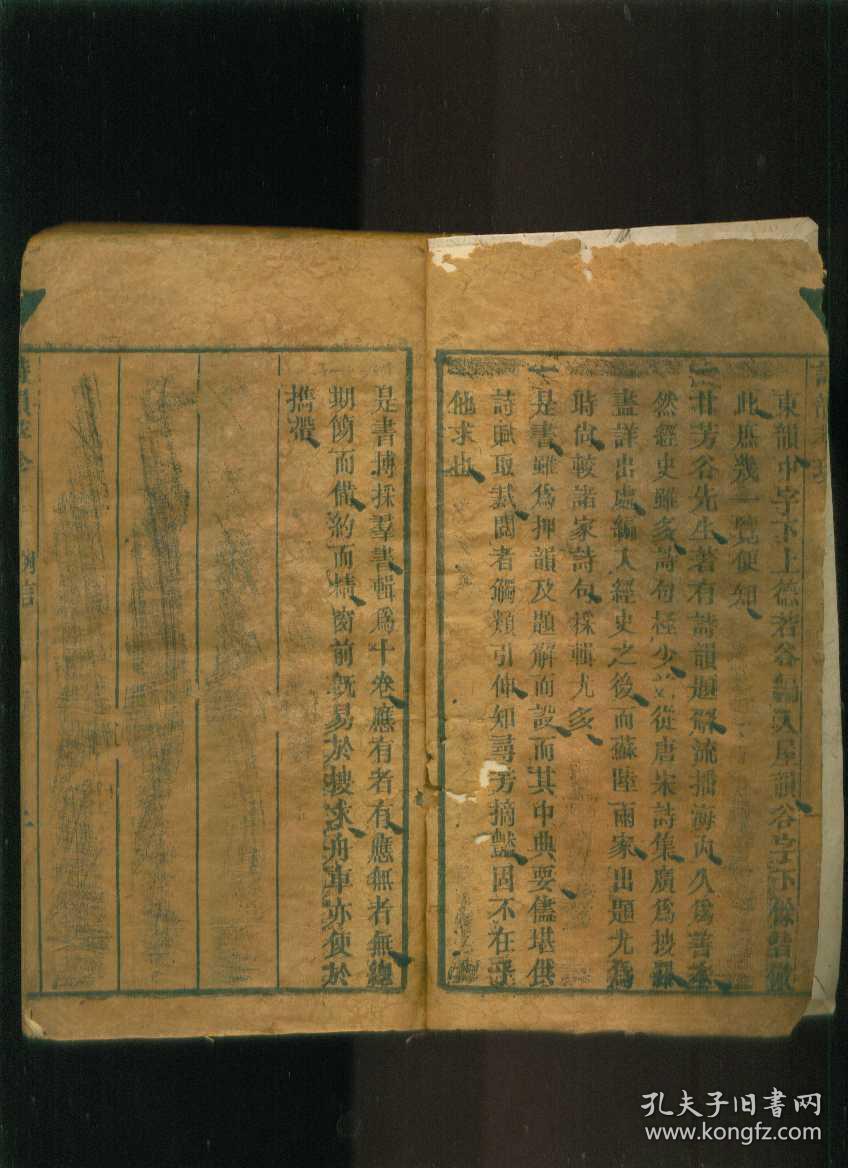 東韻中字下上德若谷編入屋韻谷字下餘皆倣
此庶幾一覽便知
甘芳谷先生著有詩韻題解流播海內久爲善本
然經史雖多詩句極少茲從唐宋詩集廣爲搜羅
盡詳出處編入經史之後而蘇陸兩家出題尤爲
時尚較諸家詩句採輯尤多
是書雖爲押韻及題解而設而其中典要儘堪供
詩賦取裁閱者觸類引伸知尋芳摘豔固不在乎
他求也
是書博採羣書輯爲十卷應有者有應無者無總
期簡而備約而精窗前既易於搜求舟車亦便於
攜帶
孔夫子旧书网
www.kongfz.com